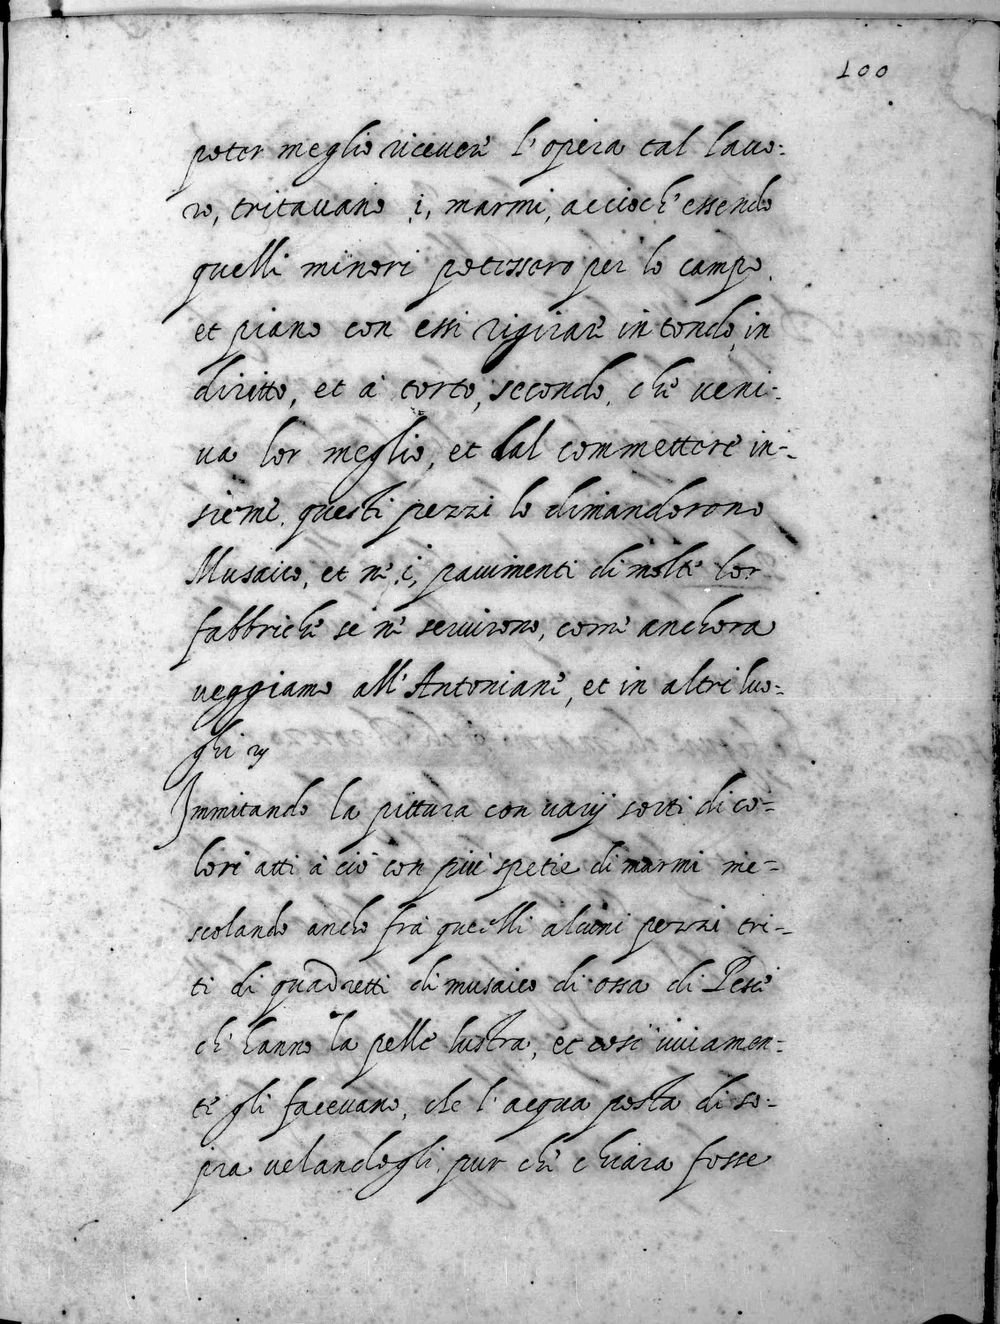 100
poter meglio riceverè l'opera tal lauo-
ro, tritauano i, marmi, acciochè essendo
quelli minori potessoro per lo campo
et piano con essi rigirarè in tondo, in
diritto, et à torto, secondo, chè ueni-
ua lor meglio, et dal commetterè in-
siemè questi pezzi lo dimandorono
Musaico, et nè, i, pauimenti di moltè lor
fabbrichè se nè seruirono, comè anchora
ueggiamo all'Antonianè, et in altri luo-
ghi
Immitando la pittura con uarij sorti di co-
lori atti à ciò con più spetie di marmi me-
scolando ancho frà quelli alcuni pezzi tri-
ti di quadretti di musaico di ossa di Pescè
ch' hanno la pellè lustra, et così uiuamen-
tè gli faceuano, che l'acqua posta di so-
pra uelandogli, pur chè chiara fosse